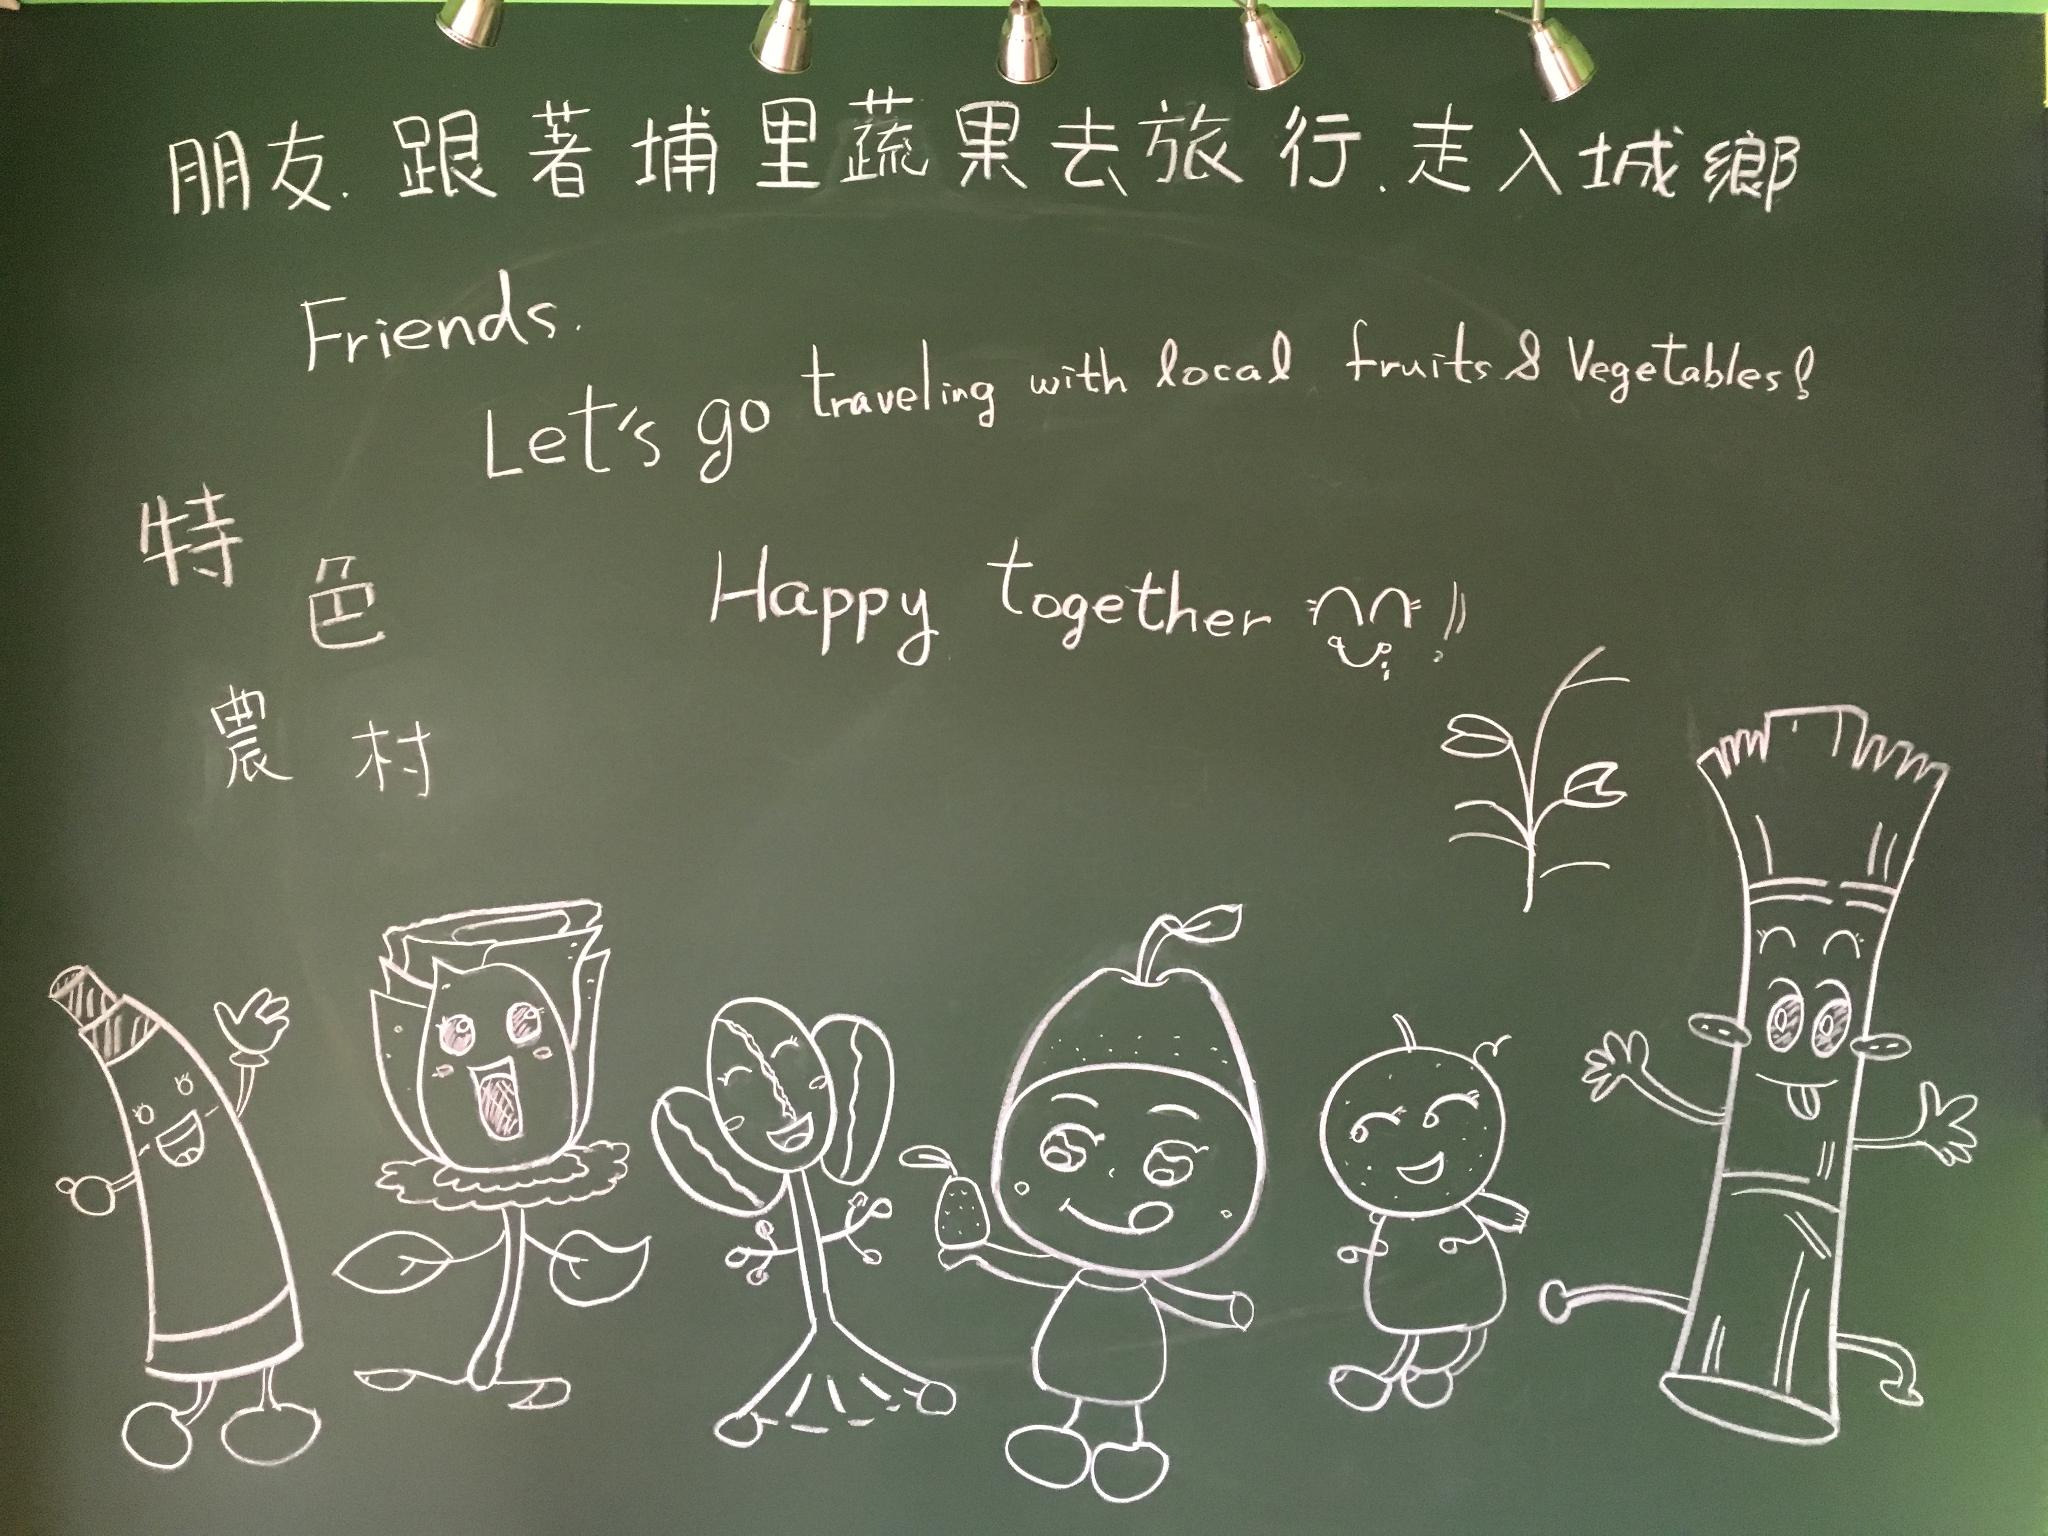 朋友.跟著埔里蔬果去旅行.走入城鄉
Friends.
Let's go traveling with local fruits & Vegetables!
特色
Happy together !!
農村